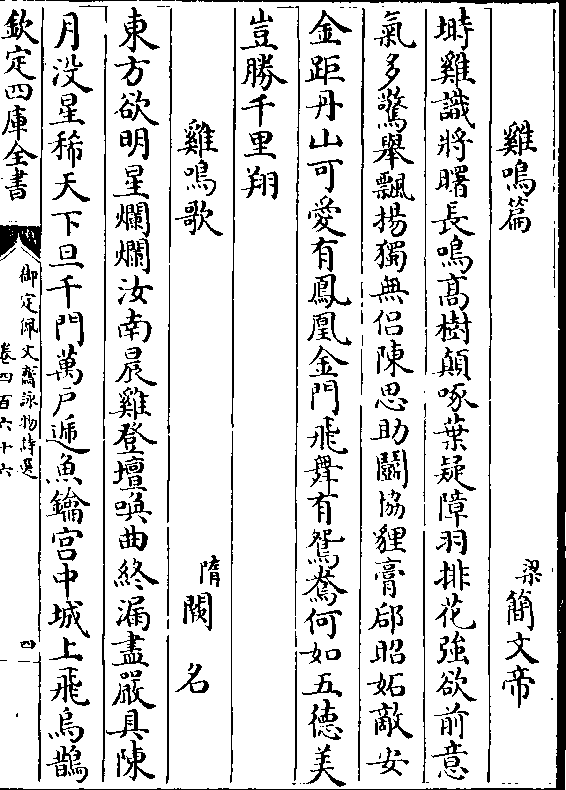 雞鳴篇
梁簡文帝
塒雞識將曙長鳴髙樹顛啄葉疑障羽排花強欲前意
氣多驚舉飄揚獨無侣陳思助鬭協貍膏郈昭妬敵安
金距丹山可愛有鳳凰金門飛舞有鴛鴦何如五德美
豈勝千里翔
雞鳴歌
隋闕名
東方欲明星爛爛汝南晨雞登壇唤曲終漏盡嚴具陳
月没星稀天下旦千門萬戸遞魚鑰宫中城上飛烏鵲
欽定四庫全書
御定佩文齋詠物詩選
卷四百六十六
四